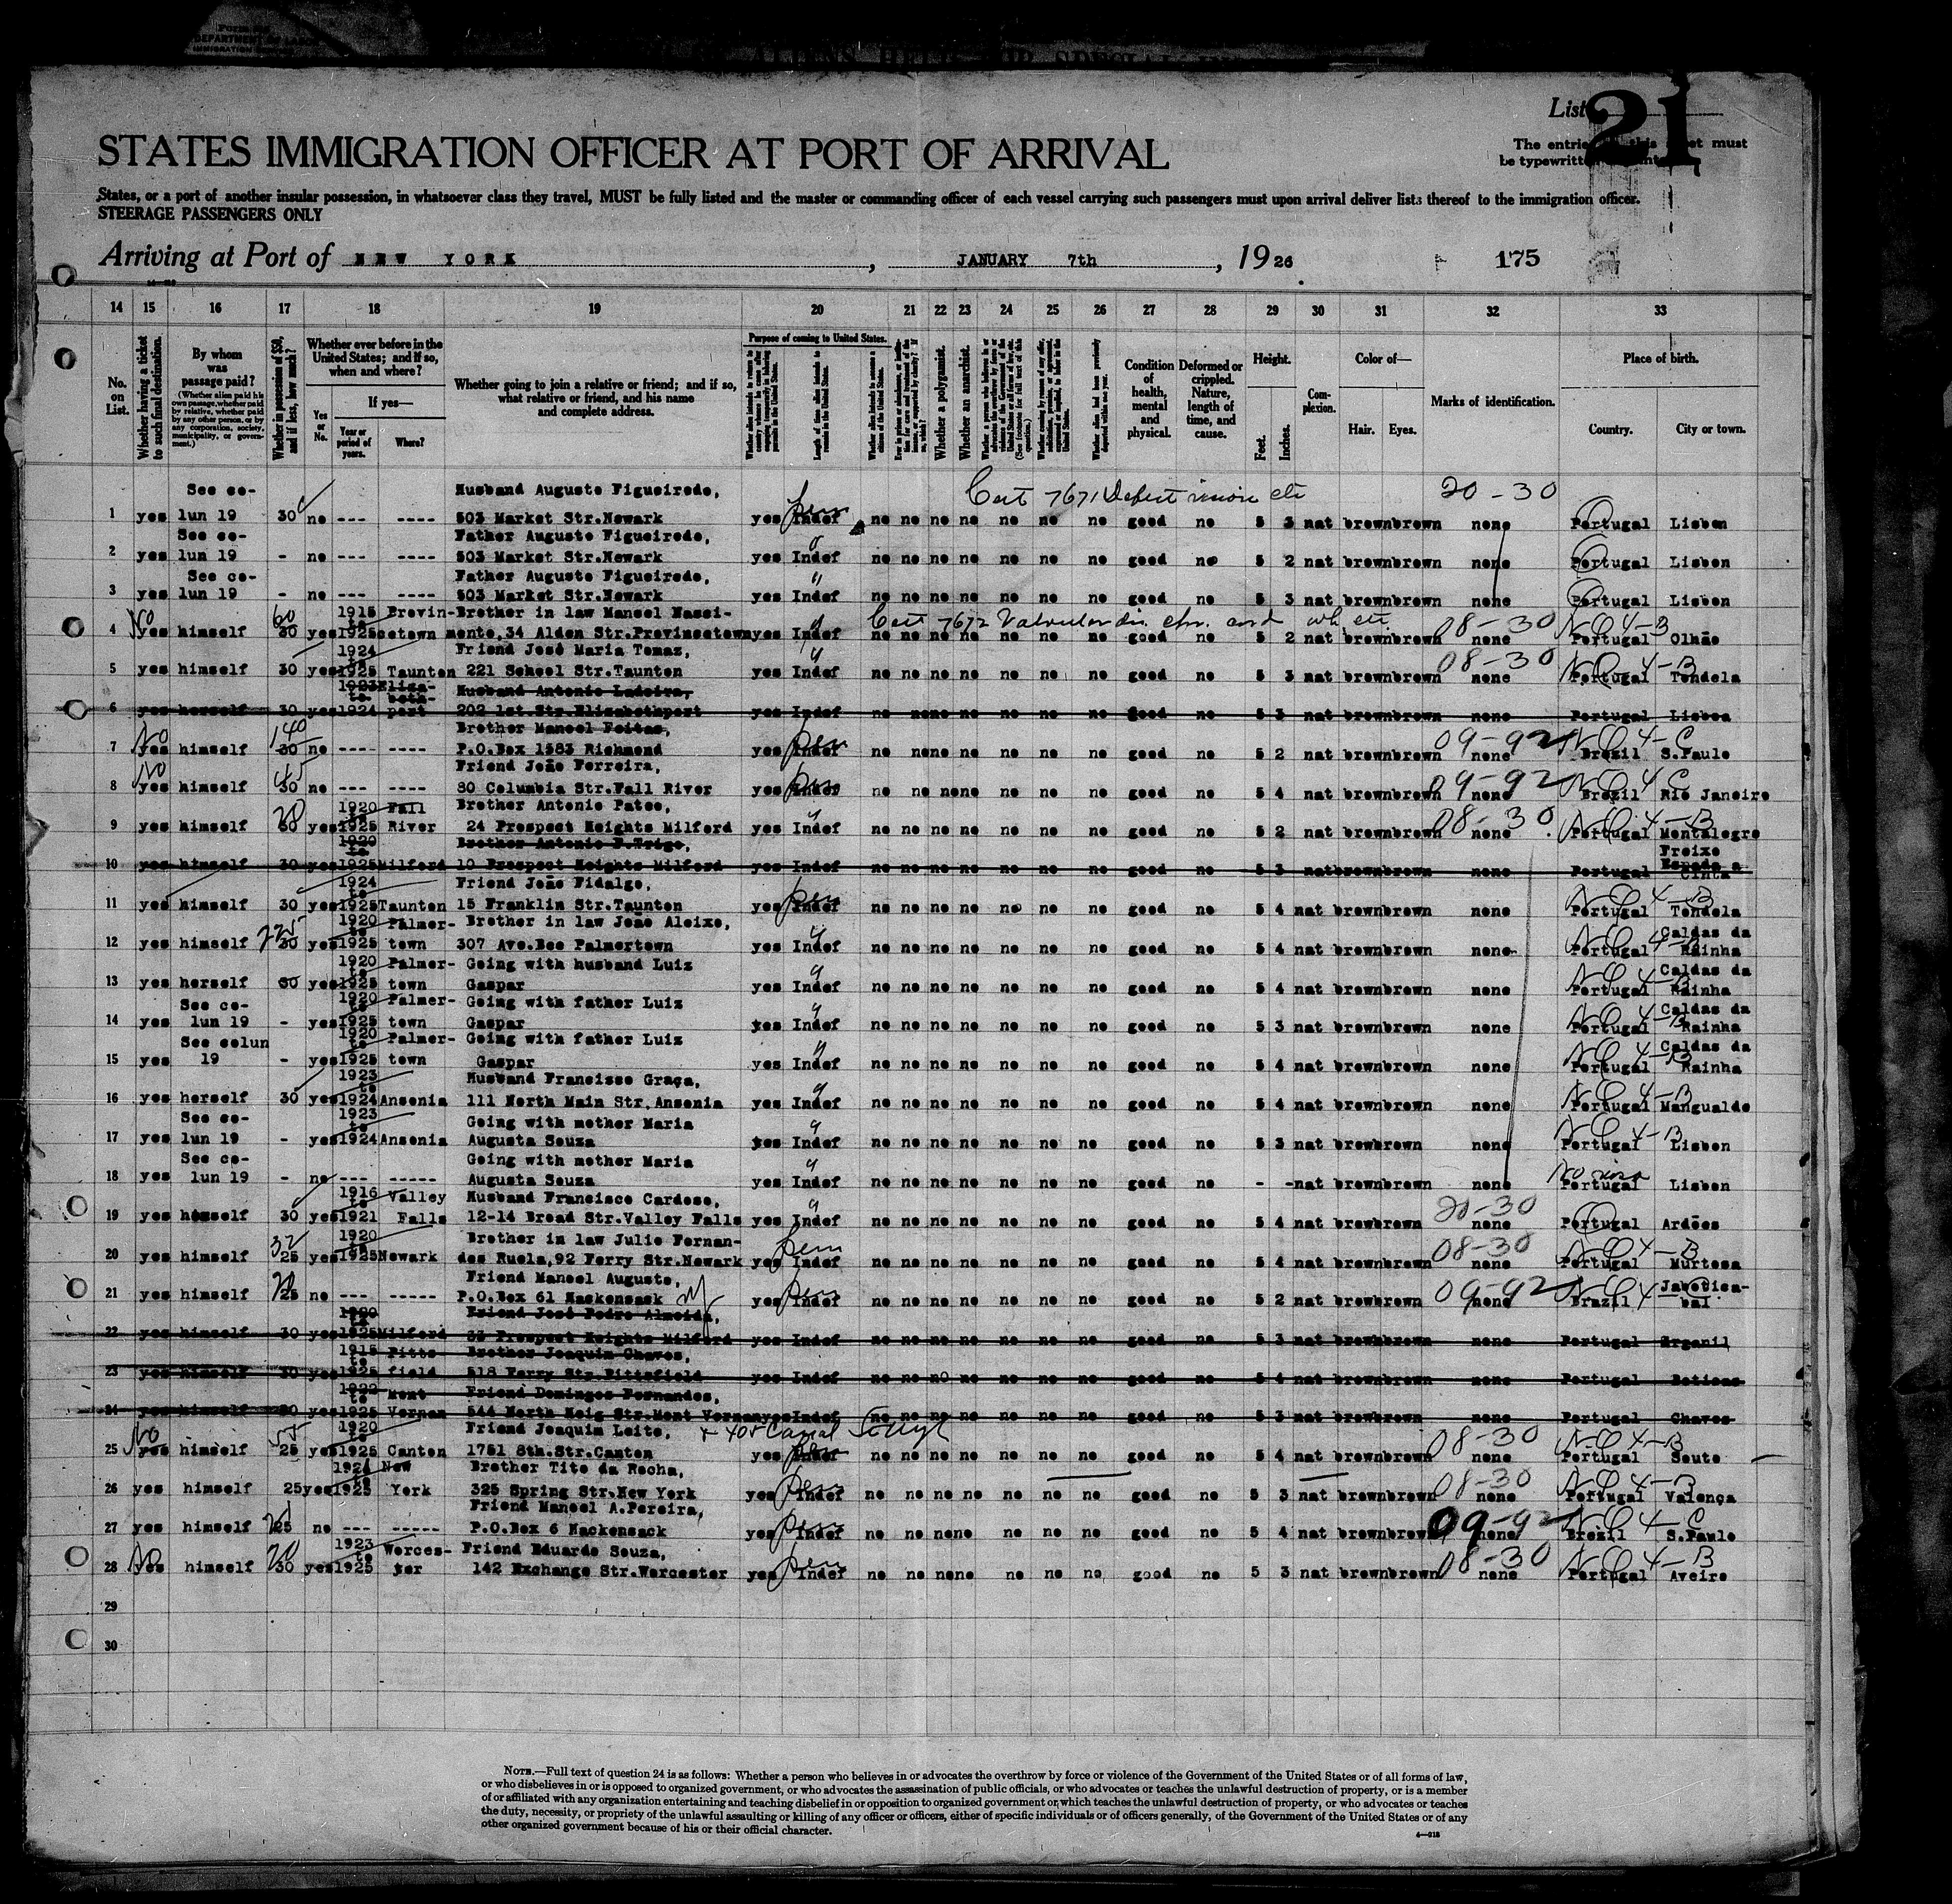 List 21
STATES IMMIGRATION OFFICER AT PORT OF ARRIVAL
The entries this sheet must
be typewritten
States, or a port of another insular possession, in whatsoever class they travel, MUST be fully listed and the master or commanding officer of each vessel carrying such passengers must upon arrival deliver lists thereof to the immigration officer.
STEERAGE PASSENGERS ONLY
Arriving at Port of NEW YORK, JANUARY 7th, 1926 175
14 15 16 17 18 19 20 21 22 23 24 25 26 27 28 29 30 31 32 33
No. on List.
Whether having a ticket to such final destination.
By whom was passage paid?
(Whether alien paid his own passage, whether paid by relative, whether paid by any other person, or by any corporation, society, municipality, or government.)
Whether in possession of $50, and if less, how much?
Whether ever before in the United States; and if so, when and where?
Yes or No.
If yes—
Year or period of years.
Where?
Whether going to join a relative or friend; and if so, what relative or friend, and his name and complete address.
Purpose of coming to United States.
Whether a polygamist.
Whether an anarchist.
Condition of health, mental and physical.
Deformed or crippled. Nature, length of time, and cause.
Height.
Feet. Inches.
Complexion.
Color of—
Hair. Eyes.
Marks of identification.
Place of birth.
Country. City or town.
See co- Husband Augusto Figueiredo, Cert 7671 Defect vision etc 20-30
1 yes lun 19 30 no --- ---- 503 Market Str.Newark yes Indef no no no no no no no good no 5 3 nat brown brown none Portugal Lisbon
See co- Father Augusto Figueiredo,
2 yes lun 19 - no --- ---- 503 Market Str.Newark yes Indef no no no no no no no good no 5 2 nat brown brown none Portugal Lisbon
See co- Father Augusto Figueiredo,
3 yes lun 19 - no --- ---- 503 Market Str.Newark yes Indef no no no no no no no good no 5 3 nat brown brown none Portugal Lisbon
No 60 1915 to Provin- Brother in law Manoel Nassi- Cert 7672 08-30 NQ 4-B
4 yes himself 30 yes 1925 cetown mento,34 Alden Str.Provincetown yes Indef no no no no no no no good no 5 2 nat brown brown none Portugal Olhão
1924 to Friend José Maria Tomaz, 08-30 NQ 4-B
5 yes himself 30 yes 1925 Taunton 221 School Str.Taunton yes Indef no no no no no no no good no 5 3 nat brown brown none Portugal Tondela
1923 to Eliza-beth- Husband Antonio Ladeira,
6 yes herself 30 yes 1924 port 202 1st.Str.Elizabethport yes Indef no no no no no no no good no 5 3 nat brown brown none Portugal Lisboa
No 140 Brother Manoel Feitas, 09-92 NQ 4-C
7 yes himself 30 no ---- ---- P.O.Box 1583 Richmond yes Indef no no no no no no no good no 5 2 nat brown brown none Brezil S.Paulo
No 45 Friend João Ferreira, 09-92 NQ 4 C
8 yes himself 30 no --- ---- 80 Columbia Str.Fall River yes Indef no no no no no no no good no 5 4 nat brown brown none Brezil Rio Janeiro
1920 to Fall Brother Antonio Patoo, 08-30 NQ 4-B
9 yes himself yes 1925 River 24 Prospect Heights Milford yes Indef no no no no no no no good no 5 2 nat brown brown none Portugal Montalegre
1920 to Brother Antonio P.Trigo, Freixo
10 yes himself 30 yes 1925 Milford 10 Prospect Heights Milford yes Indef no no no no no no no good no 5 3 nat brown brown none Portugal Espada a Cinta
1924 Friend João Fidalgo, NQ 4-B
11 yes himself 30 yes 1925 Taunton 15 Franklin Str.Taunton yes Indef no no no no no no no good no 5 4 nat brown brown none Portugal Tondela
225 1920 to Palmer- Brother in law João Aleixo, NQ 4-B Caldas da
12 yes himself 30 yes 1925 town 307 Ave.Bee Palmertown yes Indef no no no no no no no good no 5 4 nat brown brown none Portugal Rainha
1920 to Palmer- Going with husband Luiz NQ 4-B Caldas da
13 yes herself 30 yes 1925 town Gaspar yes Indef no no no no no no no good no 5 4 nat brown brown none Portugal Rainha
See co- 1920 to Palmer- Going with father Luiz NQ 4-B Caldas da
14 yes lun 19 - yes 1925 town Gaspar yes Indef no no no no no no no good no 5 3 nat brown brown none Portugal Rainha
See colun 1920 to Palmer- Going with father Luiz NQ 4-B Caldas da
15 yes 19 - yes 1925 town Gaspar yes Indef no no no no no no no good no 5 4 nat brown brown none Portugal Rainha
1923 to Husband Francisso Graça, NQ 4-B
16 yes herself 30 yes 1924 Ansonia 111 North Main Str.Ansonia yes Indef no no no no no no no good no 5 4 nat brown brown none Portugal Mangualde
See co- 1923 to Going with mother Maria NQ 4-B
17 yes lun 19 - yes 1924 Ansonia Augusta Souza yes Indef no no no no no no no good no 5 3 nat brown brown none Portugal Lisbon
See co- Going with mother Maria No visa
18 yes lun 19 - no --- ----- Augusta Souza yes Indef no no no no no no no good no - - nat brown brown none Portugal Lisbon
1916 to Valley Husband Francisco Cardoso, 20-30
19 yes hemself 30 yes 1921 Falls 12-14 Broad Str.Valley Falls yes Indef no no no no no no no good no 5 4 nat brown brown none Portugal Ardões
32 1920 Brother in law Julio Fernan- Perm 08-30 NQ 4-B
20 yes himself 25 yes 1925 Newark des Ruela,92 Ferry Str.Newark yes Indef no no no no no no no good no 5 4 nat brown brown none Portugal Murtosa
Friend Manoel Augusto, 09-92 NQ 4 Jabotica-
21 yes himself 25 no --- ----- P.O.Box 61 Hackensack yes Indef no no no no no no no good no 5 2 nat brown brown none Brazil bal
1920 to Friend José Pedro Almeida,
22 yes himself 30 yes 1925 Milford 33 Prospect Heights Milford yes Indef no no no no no no no good no 5 3 nat brown brown none Portugal Arganil
1915 to Pitts Brother Joaquim Chaves,
23 yes himself 30 yes 1925 field 518 Ferry Str.Pittsfield yes Indef no no no no no no no good no 5 4 nat brown brown none Portugal Boticas
1922 to Mont Friend Domingos Fernandes,
24 yes himself 30 yes 1925 Vernon 544 North Heig Str.Mont Vernon yes Indef no no no no no no no good no 5 3 nat brown brown none Portugal Chaves
No 55 1920 to Friend Joaquim Leite, + 405 Canal 08-30 NQ 4-B
25 yes himself 25 yes 1925 Canton 1751 8th.Str.Canton yes Indef no no no no no no no good no 5 4 nat brown brown none Portugal Souto
1924 to New Brother Tito da Rocha, 08-30 NQ 4-B
26 yes himself 25 yes 1925 York 325 Spring Str.New York yes Indef no no no no no no no good no 5 3 nat brown brown none Portugal Valença
Friend Manoel A.Pereira, 09-92 NQ 4-C
27 yes himself 25 no --- ----- P.O.Box 6 Hackensack yes Indef no no no no no no no good no 5 4 nat brown brown none Brezil S.Paulo
No 20 1923 to Worces- Friend Eduardo Souza, 08-30 NQ 4-B
28 yes himself 30 yes 1925 ter 142 Exchange Str.Worcester yes Indef no no no no no no no good no 5 3 nat brown brown none Portugal Aveiro
29
30
NOTE.—Full text of question 24 is as follows: Whether a person who believes in or advocates the overthrow by force or violence of the Government of the United States or of all forms of law,
or who disbelieves in or is opposed to organized government, or who advocates the assassination of public officials, or who advocates or teaches the unlawful destruction of property, or is a member
of or affiliated with any organization entertaining and teaching disbelief in or opposition to organized government or which teaches the unlawful destruction of property, or who advocates or teaches
the duty, necessity, or propriety of the unlawful assaulting or killing of any officer or officers, either of specific individuals or of officers generally, of the Government of the United States or of any
other organized government because of his or their official character.